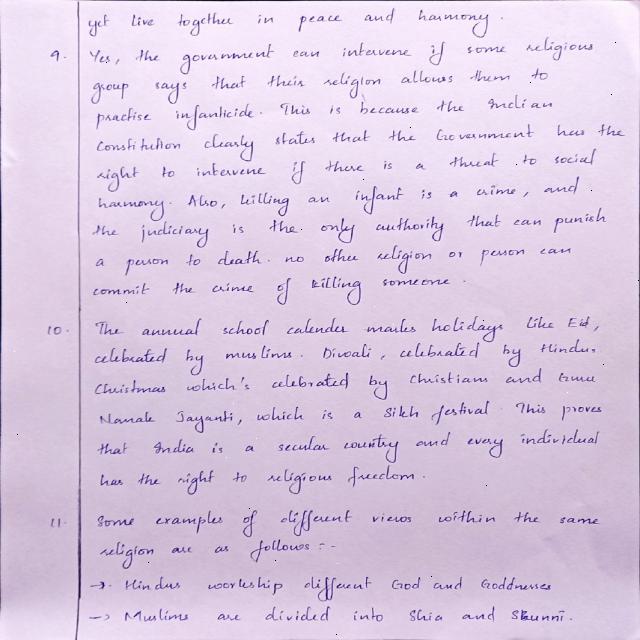 yet live together in peace and harmony.
9. Yes, the government can intervene if some religious
group says that their religion allows them to
practise infanticide. This is because the Indian
Constitution clearly states that the Government has the
right to intervene if there is a threat to social
harmony. Also, killing an infant is a crime, and
the judiciary is the only authority that can punish
a person to death. no other religion or person can
commit the crime of killing someone.
10. The annual school calender marks holidays like Eid,
celebrated by muslims. Diwali, celebrated by Hindus.
Christmas which's celebrated by Christians and Guru
Nanak Jayanti, which is a Sikh festival. This proves
that India is a secular country and every individual
has the right to religious freedom.
11. Some examples of different views within the same
religion are as follows :-
→ Hindus workship different God and Goddnesses
→ Muslims are divided into Shia and Sunni.